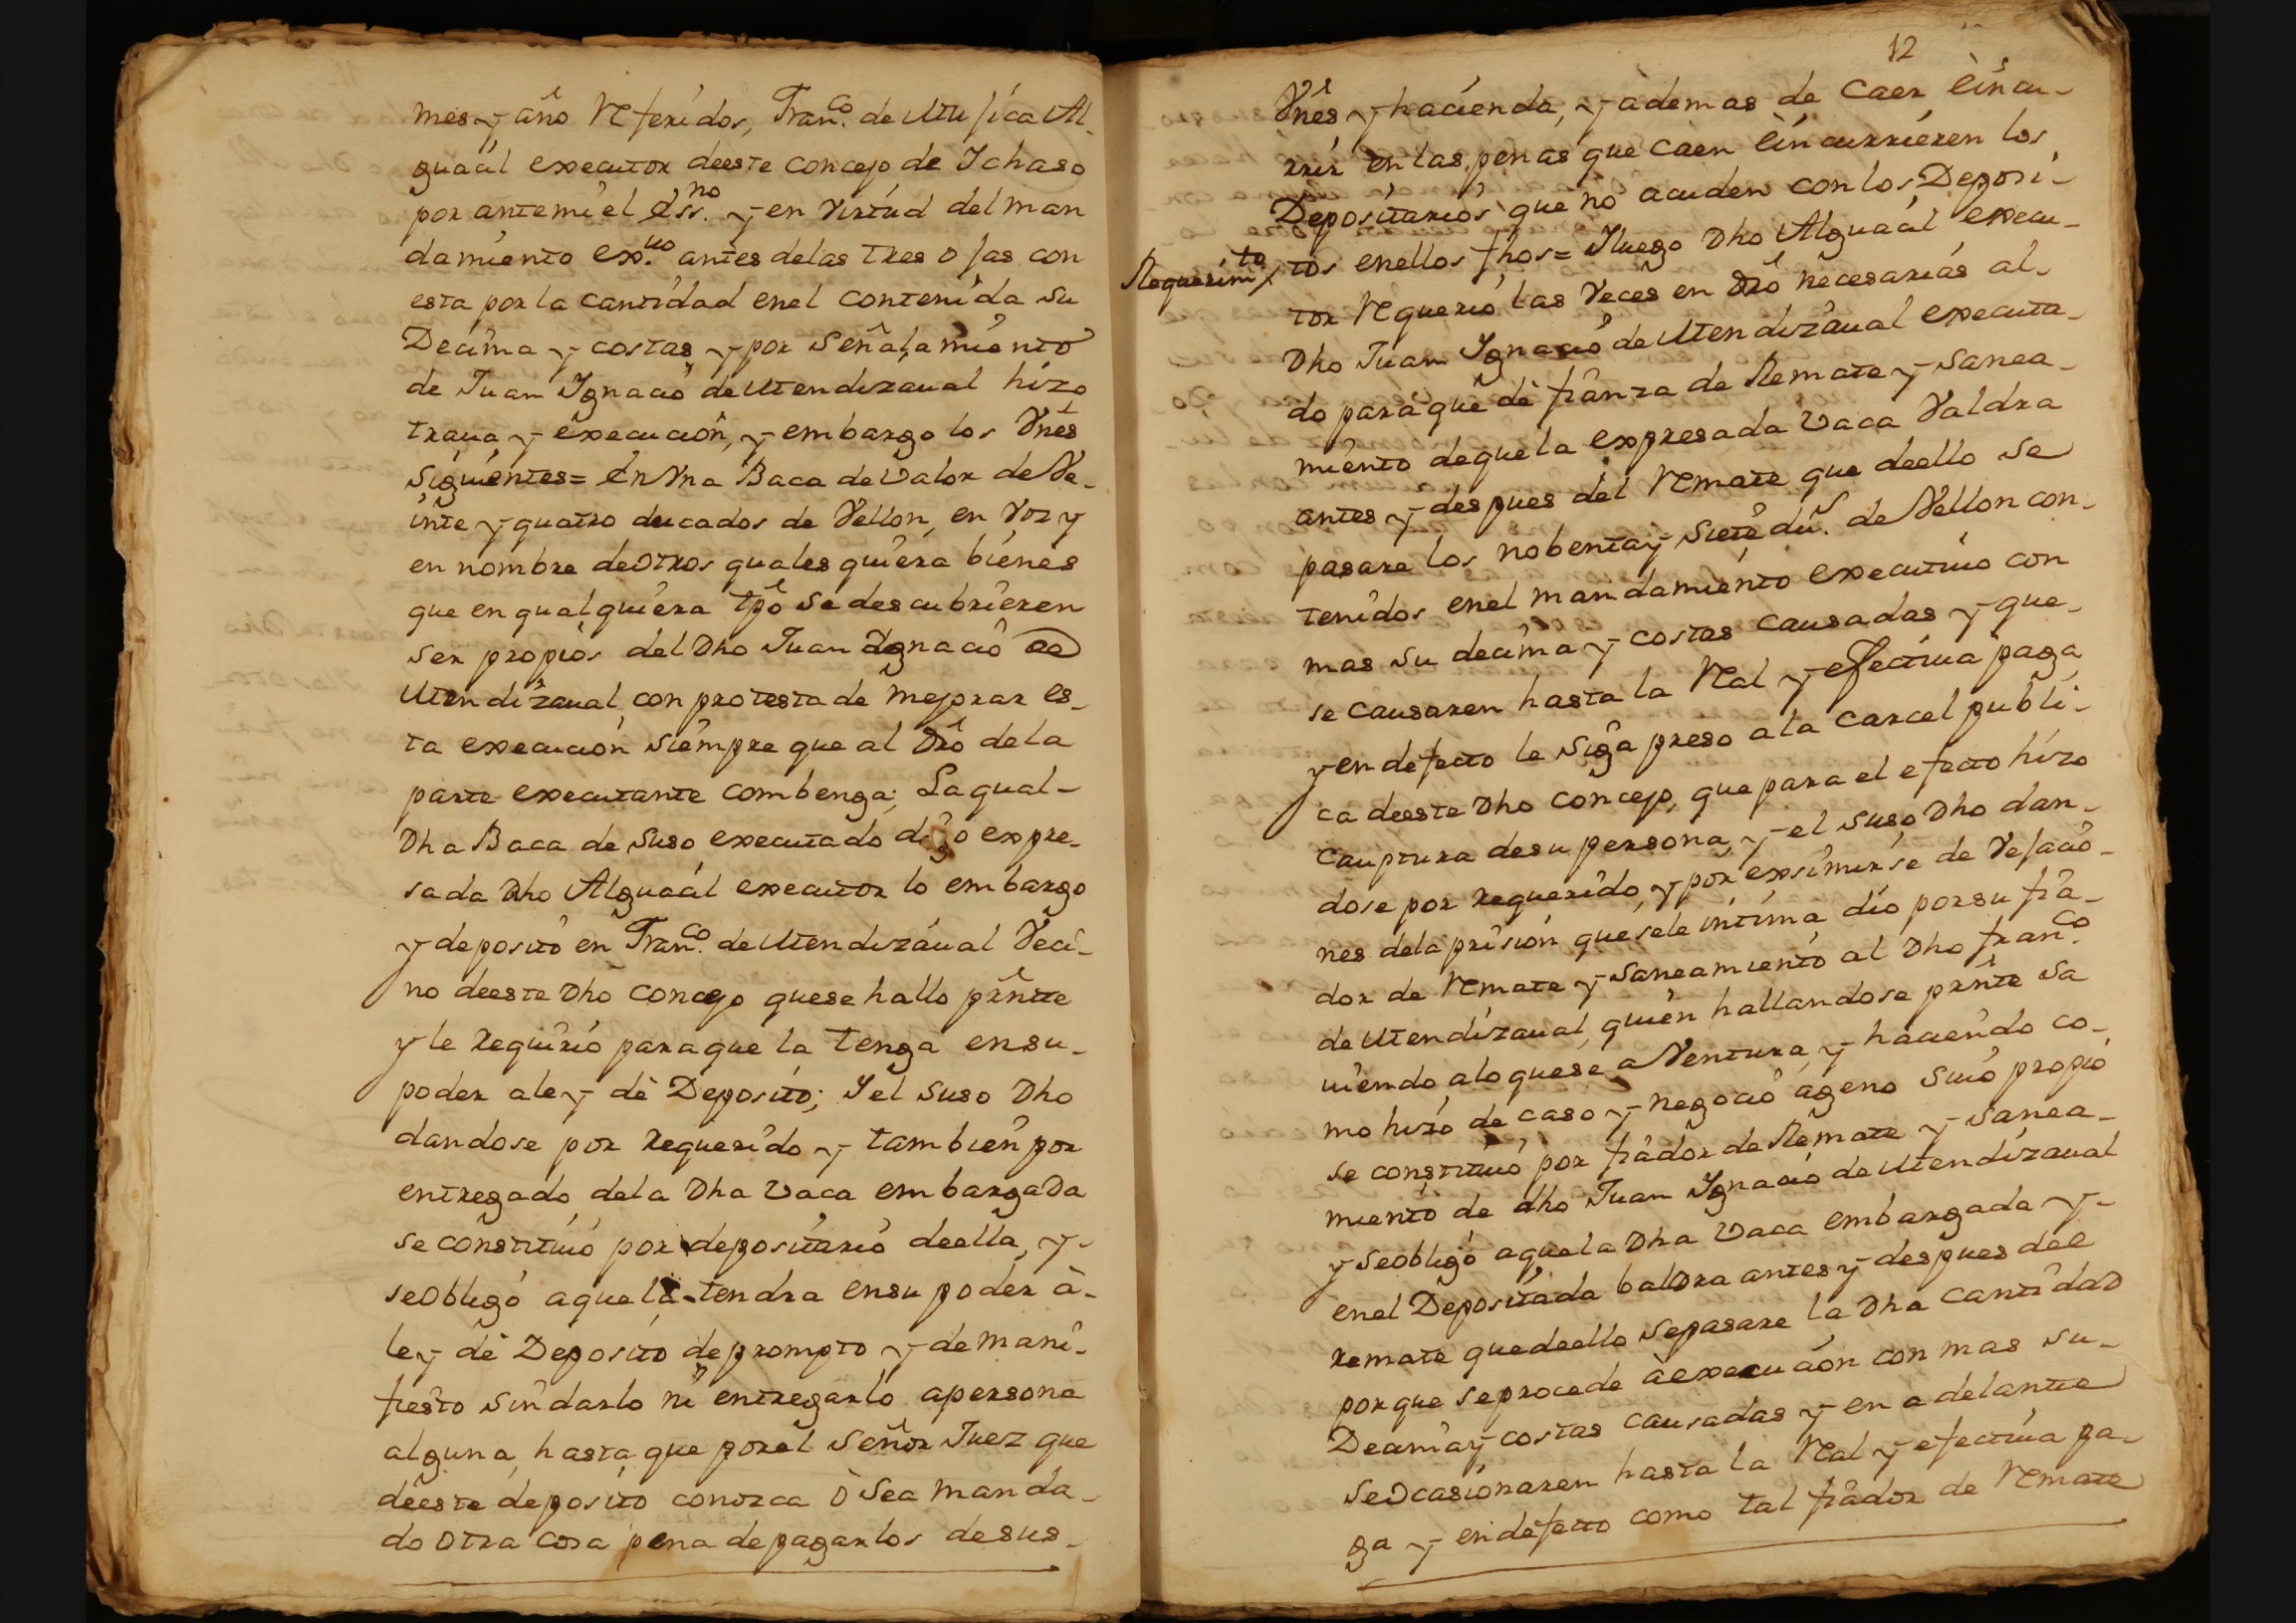 mes y año Referidos, Fran.co de Mu jica Al-
guacil executor deeste concejo de Ichaso
por antemi el ess.no y en virtud del man
damiento ex.uo antes delas tres ojas con
esta por la cantidad enel contenida su
Decima y costas y por señalamiento
de Juan Ignacio de Mendizaual hizo
traua y execucion, y embargo los Vnes
siguientes= En Vna Baca de valor de Ve-
inte y quatro ducados de Vellon, en Voz y
en nombre deotros quales quiera bienes
que en qualquiera tpo se descubrieren
ser propios del Dho Juan Ygnacio de
Mendizaual, con protesta de mejorar es-
ta execucion siempre que al Dro dela
parte executante combenga; La qual-
Dha Baca de suso executado digo expre-
sada Dho Alguacil executor lo embargo
y deposito en Fran.co de Mendizaual Veci-
no deeste Dho concejo quese hallo prnte
y le Requirio paraque la tenga ensu-
poder a ley de Deposito; Y el suso Dho
dandose por Requerido y tambien por
entregado dela Dha vaca embargada
se constituio por depositario deella, y-
seobligó aquela tendra ensu poder à-
ley de Deposito de prompto y de mani-
fiesto sin darlo ni entregarlo apersona
alguna, hasta que porel Señor Juez que
deeste deposito conozca o sea manda-
do otra cosa pena de pagarlos de sus-
12
Vnes y hacienda, y ademas de caer è incu-
rrir en las penas que caen è incurrieren los
Depositarios que no acuden con los Deposi-
Requerim.to
tos enellos fhos= Yluego Dho Alguacil execu-
tor Requerio las veces en Dro necesarias al-
Dho Juan Ygnacio de Mendizaual executa-
do para que dè fianza de Remate y sanea-
miento deque la expresada vaca Valdra
antes y despues del Remate que deello se
pasare los nobenta y siete du.s de Vellon con-
tenidos enel mandamiento executiuo con
mas su decima y costas causadas y que-
se causaren hasta la Real y efectiua paga
y en defecto le siga preso a la carcel publi-
ca deeste Dho concejo, que para el efecto hizo
cauptura desu persona, y el suso Dho dan-
dose por Requerido, y por exsimirse de Vejacio-
nes dela prision quesele intima dio por su fia-
dor de Remate y saneamiento al Dho fran.co
de Mendizaual, quien hallandose prnte sa
uiendo aloquese aventura, y haciendo co-
mo hizo de caso y negocio ageno suio propio
se constituio por fiador de Remate y sanea-
miento de dho Juan Ygnacio de Mendizaual
y seobligó aquela Dha vaca embargada y-
enel Depositada baldra antes y despues del
Remate quedeello sepasare la Dha cantidad
porque seprocede à execucion con mas su-
Decima y costas causadas y en adelante
seocasionaren hasta la Real y efectiua pa-
ga y en defecto como tal fiador de Remate